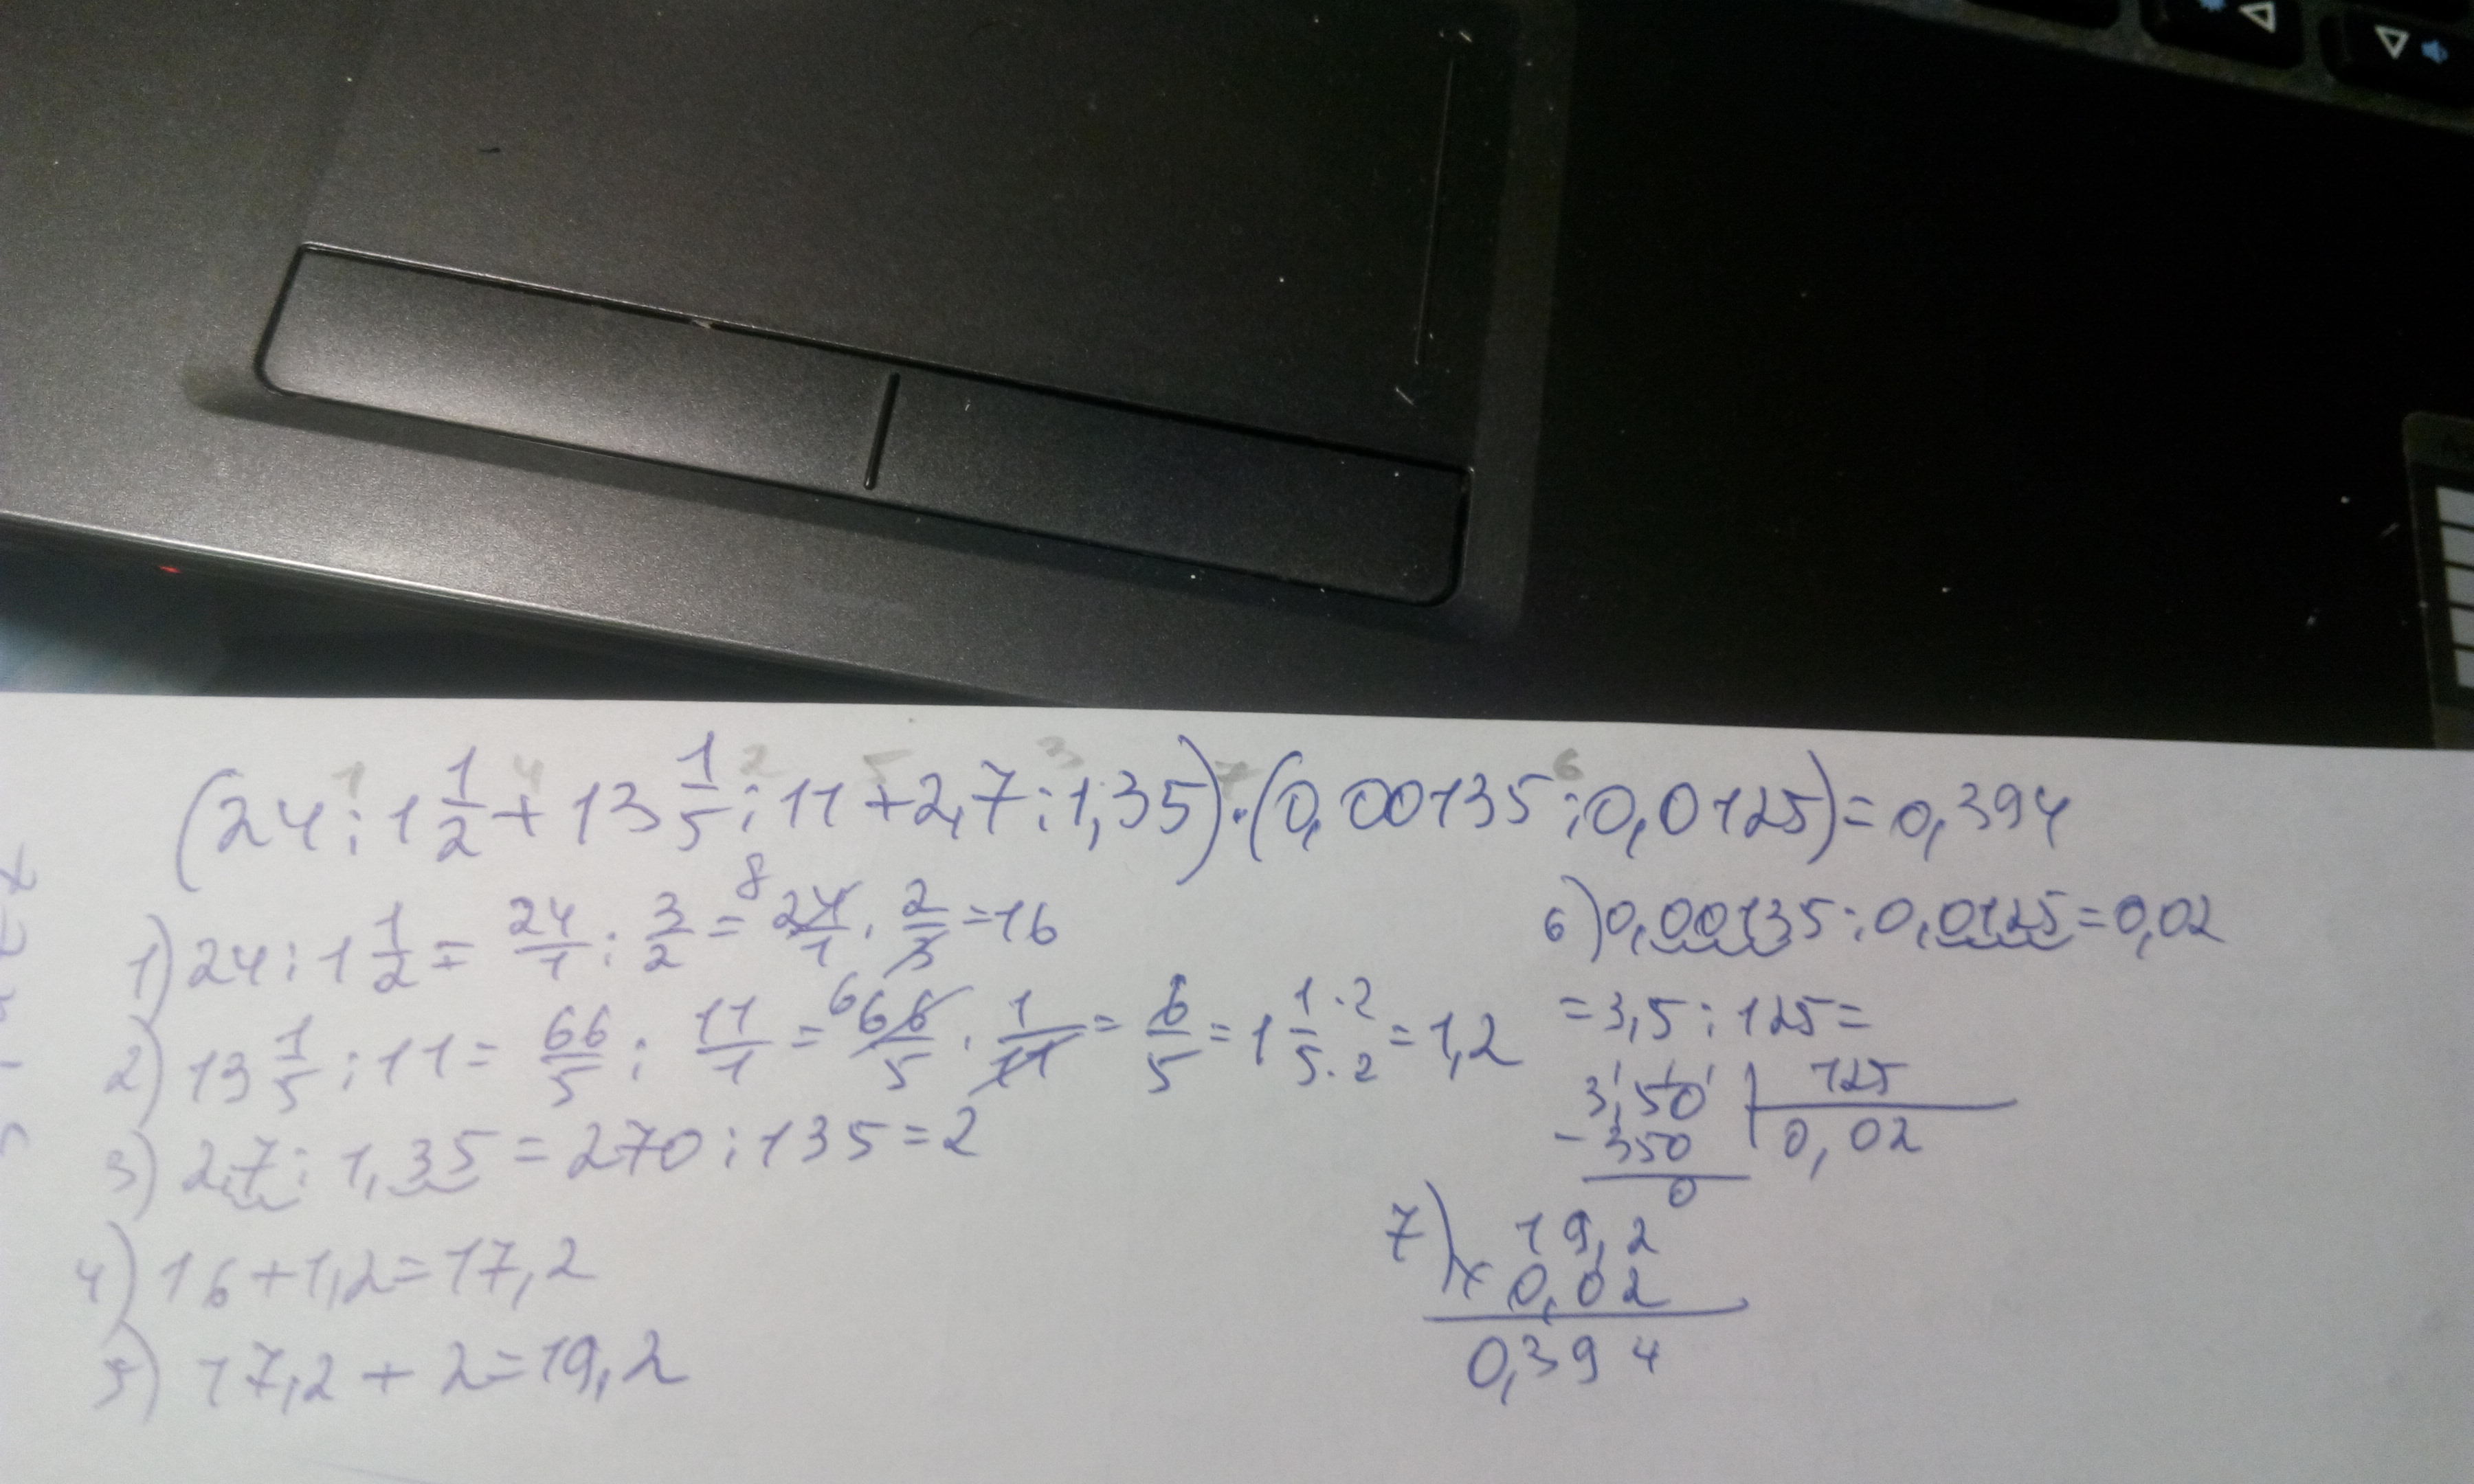 (24 : 1 1/2 + 13 1/5 : 11 + 2,7 : 1,35) · (0,00135 : 0,0125) = 0,394
1) 24 : 1 1/2 = 24/1 : 3/2 = 8 24/1 · 2/3 = 16
2) 13 1/5 : 11 = 66/5 : 11/1 = 6 66/5 · 1/11 = 6/5 = 1 1·2/5·2 = 1,2
3) 2,7 : 1,35 = 270 : 135 = 2
4) 16 + 1,2 = 17,2
5) 17,2 + 2 = 19,2
6) 0,00135 : 0,0125 = 0,02
= 3,5 : 125 =
3,50 125
- 350 0,02
0
7) 19,2
× 0,02
0,394